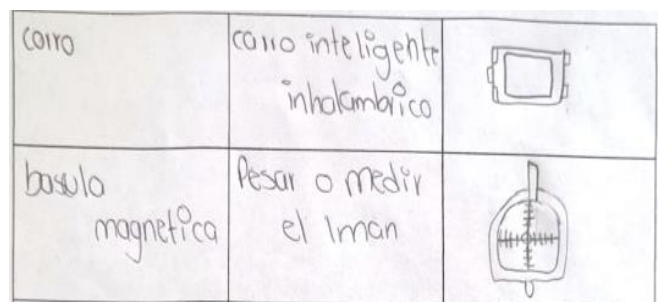 carro
carro inteligente
inhalambrico
basula
magnetica
Pesar o medir
el Iman